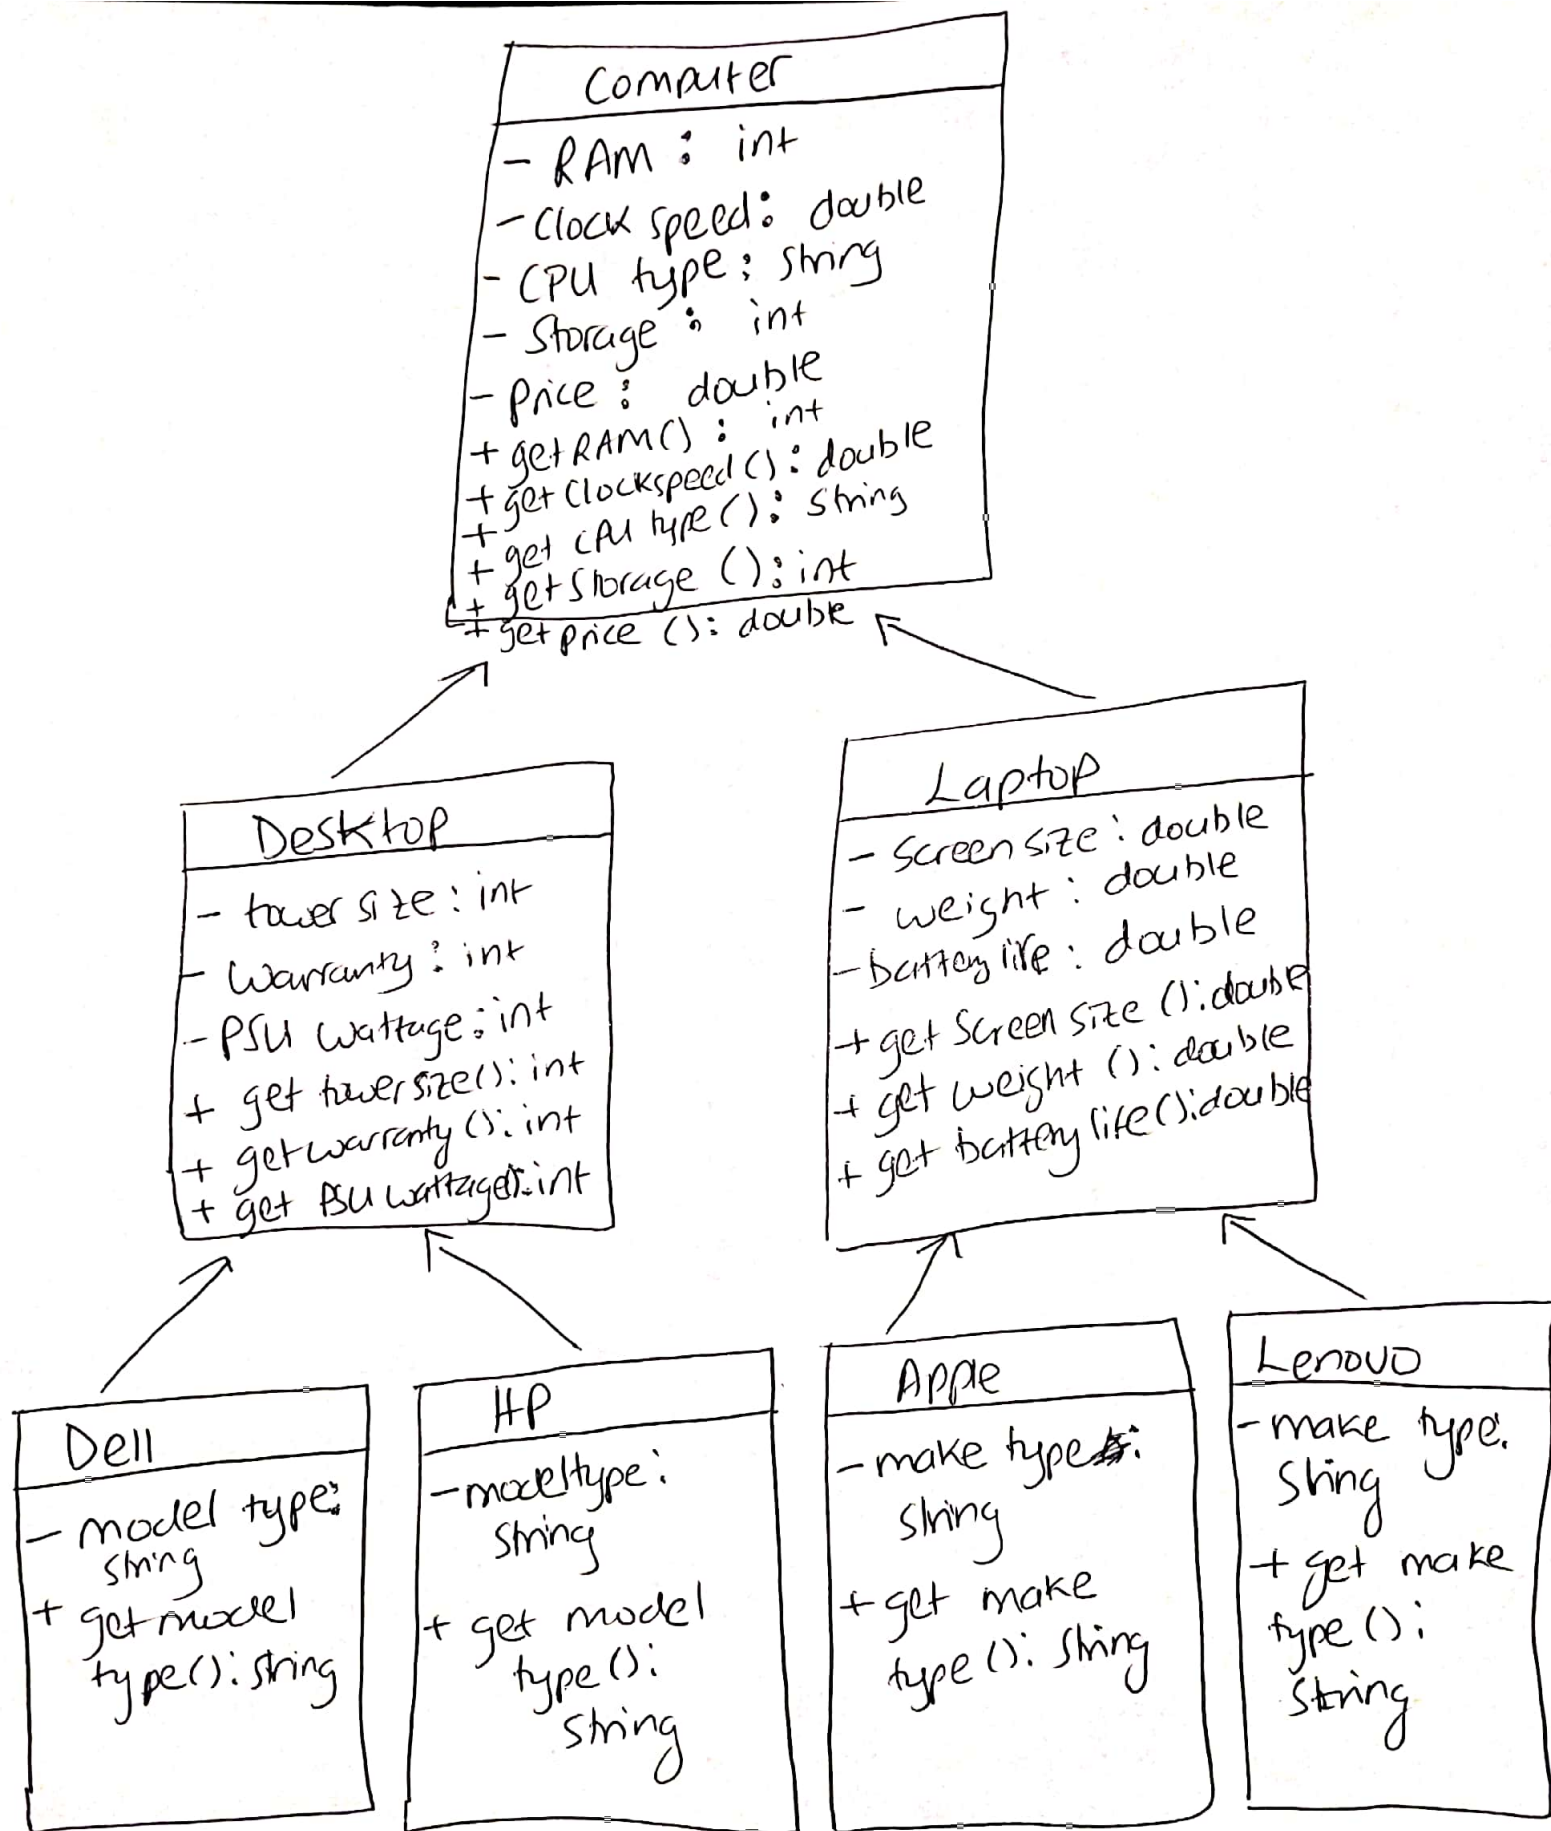 Computer
- RAM : int
- Clock speed: double
- CPU type: string
- Storage : int
- Price : double
+ getRAM() : int
+ getClockspeed(): double
+
+ get CPU type(): String
+ getStorage (): int
+ getprice (): double
Desktop
- tower size: int
- Warranty: int
- PSU Wattage: int
+ get towersize(): int
+ getwarranty(): int
+ get PSU wattage(): int
Laptop
- Screen size: double
- weight: double
- battery life: double
+ get Screen size (): double
+ get weight (): double
+ get battery life(): double
Dell
- model type:
string
+ getmodel
type(): string
HP
- modeltype:
string
+ get model
type():
string
Apple
- make type:
string
+ get make
type(): string
Lenovo
- make type:
string
+ get make
type():
String